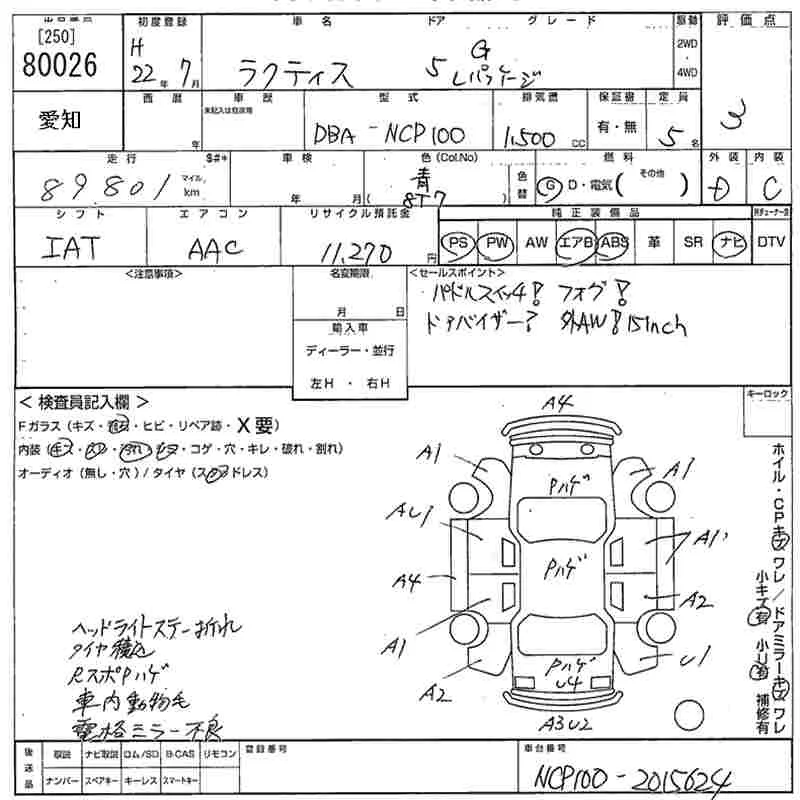 [250]
80026
愛知
初度登録
H
22年 7月
車名
ラクティス
ドア
5
グレード
G
Lパッケージ
駆動
2WD
4WD
評価点
3
西暦
年
車歴
未記入は自家用
型式
DBA - NCP100
排気量
1,500 cc
保証書
有・無
定員
5名
走行
$#*
89,801
マイル
km
車検
年 月
色(Col.No)
青
( 8T7 )
色替
燃料
G D・電気( その他 )
外装
D
内装
C
シフト
IAT
エアコン
AAC
リサイクル預託金
11,270円
純正装備品
PS PW AW エアB ABS 革 SR ナビ
DTV
<注意事項>
名変期限
月 日
輸入車
ディーラー・並行
左H ・ 右H
<セールスポイント>
パドルスイッチ! フォグ!
ドアバイザー! 外AW! 15inch
< 検査員記入欄 >
Fガラス (キズ・ ・ヒビ・リペア跡・X要)
内装 (キズ・ ・ ・ ・コゲ・穴・キレ・破れ・割れ)
オーディオ (無し・穴) / タイヤ (スタッドレス)
キーロック
A4
A1
A1
Pハゲ
AU1
A1
Pハゲ
A4
A2
A1
Pハゲ
U4
U1
A2
A3U2
ホイル・CPキズ ワレ/ドアミラーキズ ワレ
小キズ有 小U有 補修有
ヘッドライトステー折れ
タイヤ積込
RスポPハゲ
車内動物毛
電格ミラー不良
後送品
取説 ナビ取説 ロム/SD B-CAS リモコン
ナンバー スペアキー キーレス スマートキー
登録番号
車台番号
NCP100-2015624